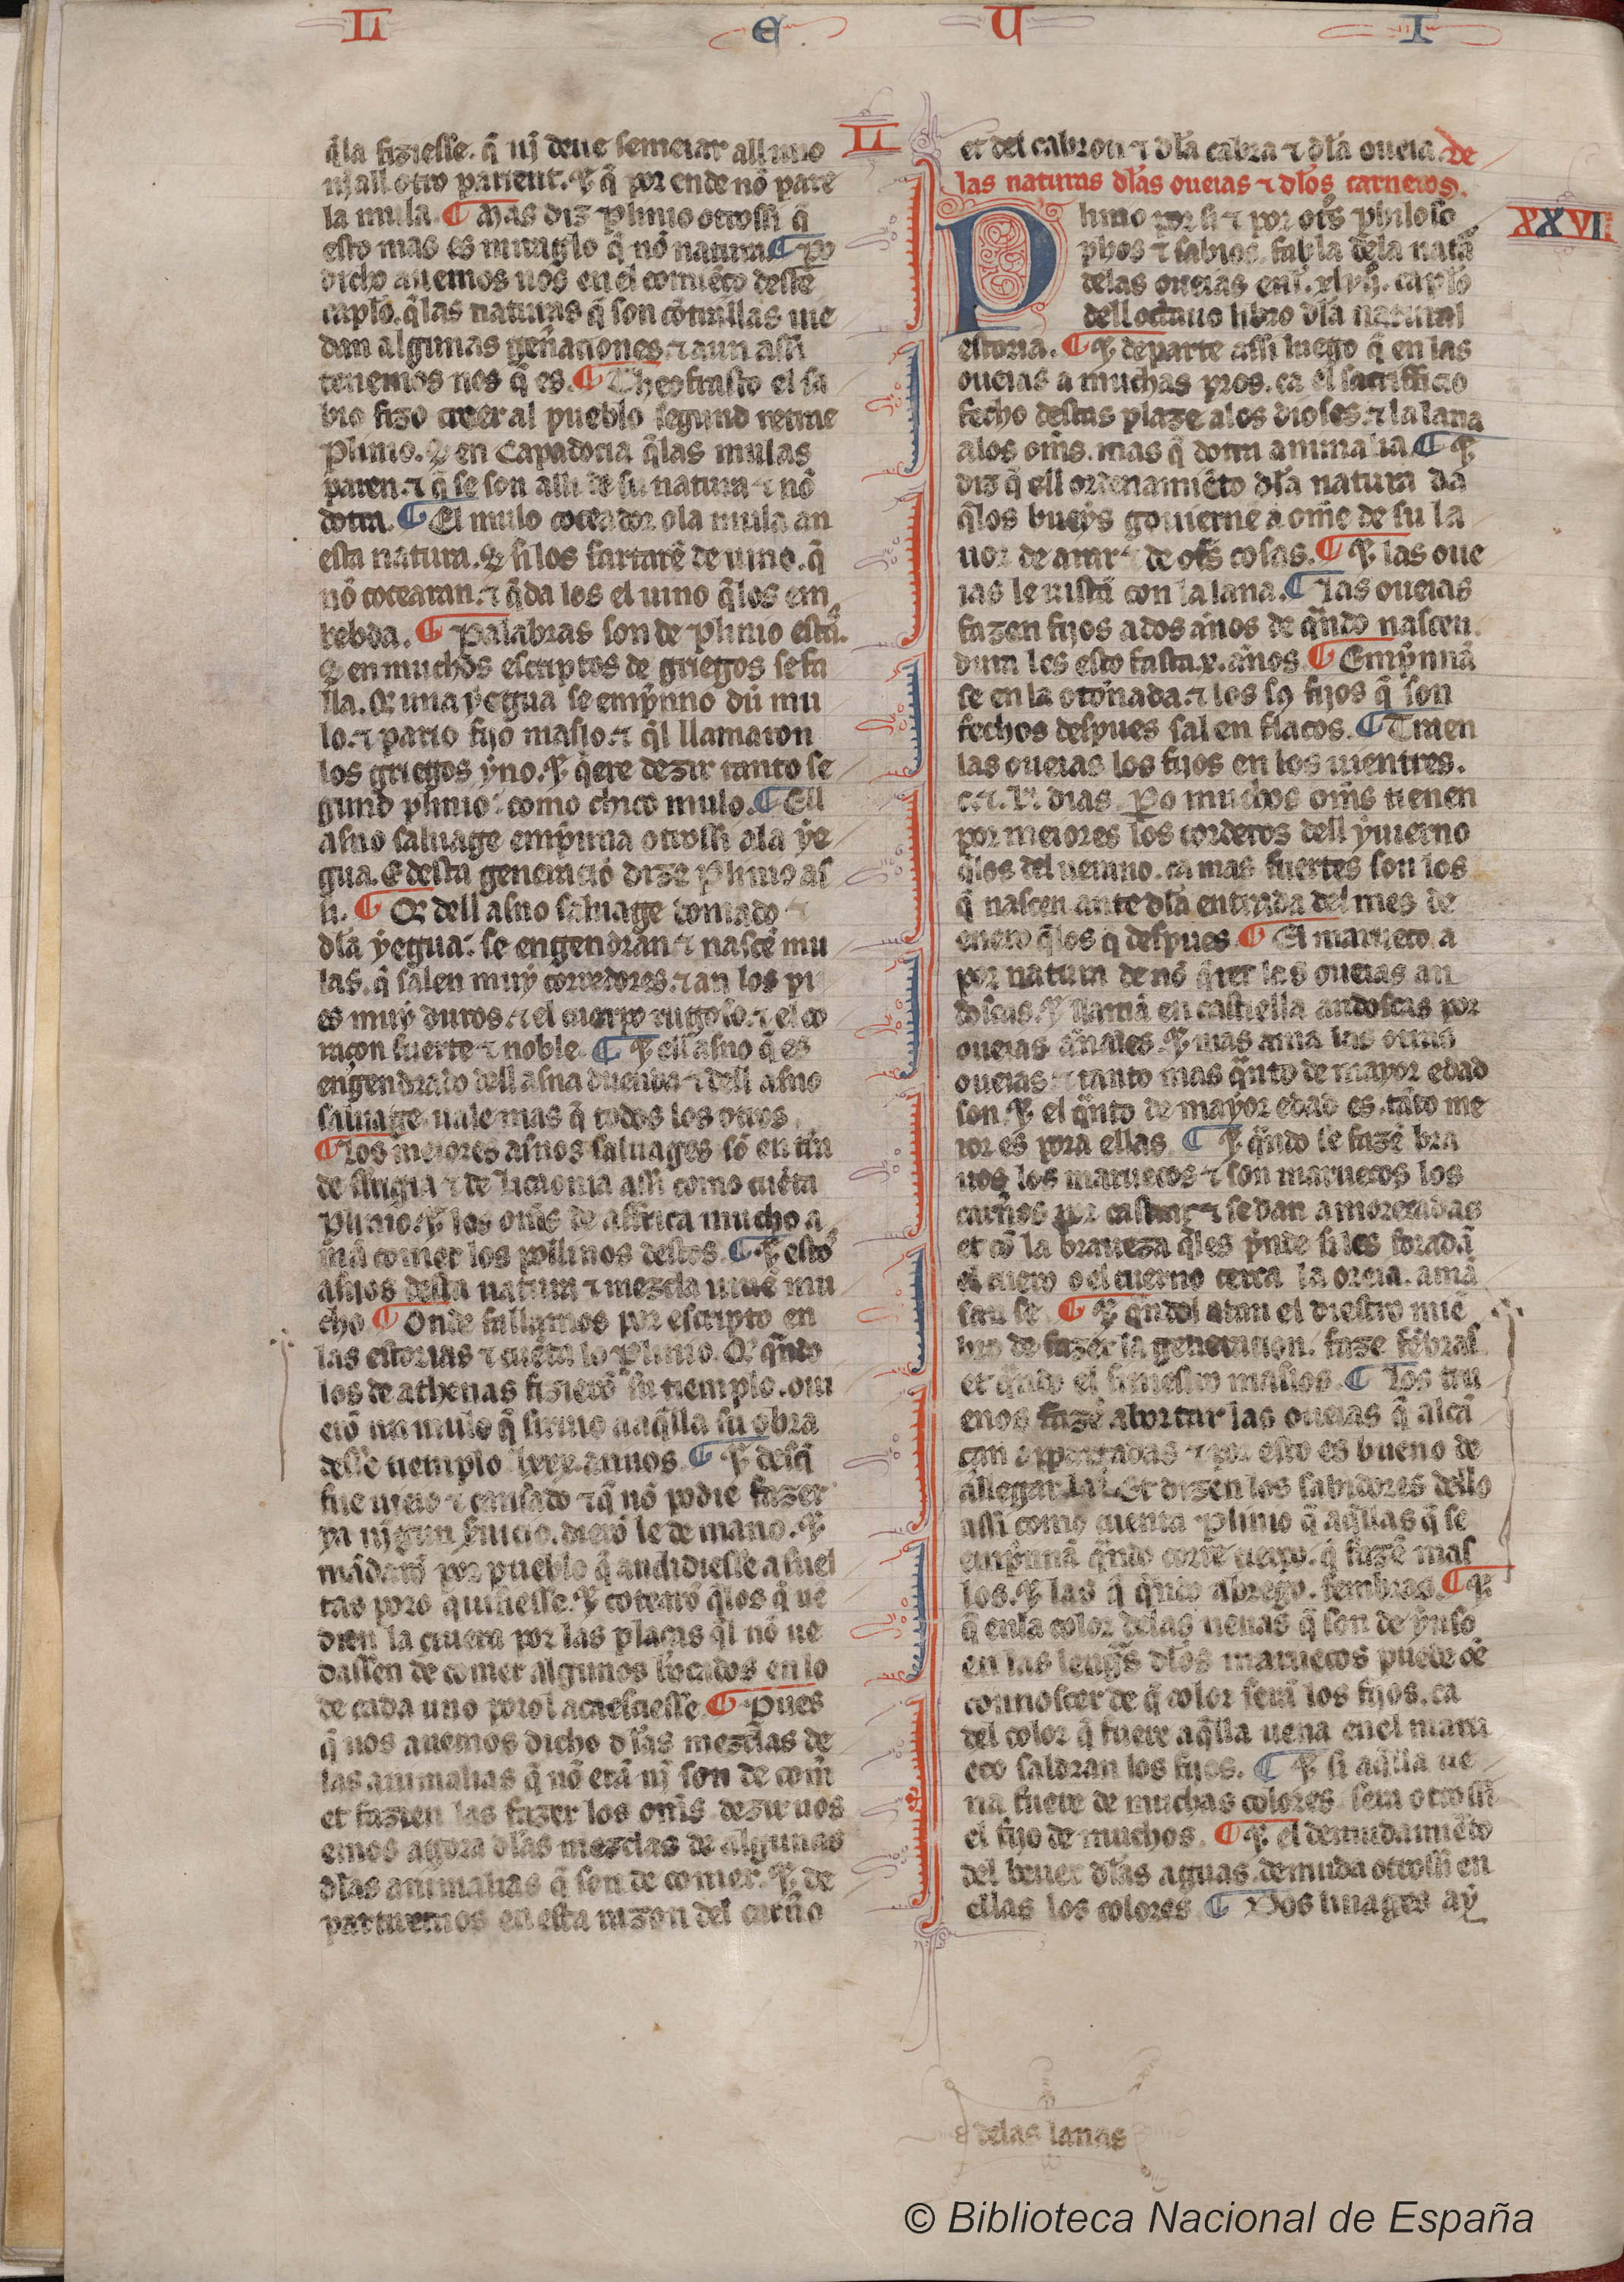 L E U I
q̃la fiziesse. q̃ nj̃ deue semeiar all uno
nj̃ all otro parient. ⁊ q̃ por ende nõ pare
la mula. ¶ Mas diz plinio otrossi q̃
esto mas es miraglo q̃ nõ natura ¶ Po
dicho auemos nos en el comiẽço deste
cap̃lo. q̃ las naturas q̃ son cõtrallas me
dan algunas gen̄aciones. ⁊ aun assi
tenemos nos q̃ es. ¶ Theofrasto el sa
bio fizo creer al pueblo segund retrae
plinio. Q̃ en Capadocia q̃ las mulas
paren. ⁊ q̃ se son alli de su natura ⁊ nõ
dotra. ¶ El mulo coceador o la mula an
esta natura. Q̃ si los fartarẽ de uino. q̃
nõ cocearan. ⁊ q̃da los el uino q̃ los em
bebda. ¶ Palabras son de plinio estas.
Q̃ en muchos escriptos de griegos se fa
lla. Q̃ una yegua se emprenno dũ mu
lo. ⁊ pario fijo maslo. ⁊ q̃l llamaron
los griegos ẏno. ⁊ q̃ere dezir tanto se
gund plinio: como chico mulo. ¶ Ell
asno saluage emprenna otrossi a la ẏe
gua. E desta generacio dize plinio as
si. ¶ Q̃ dell asno saluage domado ⁊
dla ẏegua: se engendran ⁊ nascẽ mu
las. q̃ salen muẏ corredores. ⁊ an los pi
es muẏ duros. ⁊ el cuerpo rugoso. ⁊ el co
raçon fuerte ⁊ noble. ¶ ⁊ ell asno q̃ es
engendrado dell asna duenda ⁊ dell asno
saluage uale mas q̃ todos los otros.
¶ Los meiores asnos saluages sõ en tr̃ra
de frigia ⁊ de Licaonia assi como cuẽta
plinio. ⁊ los om̃s de affrica mucho a
mã comer los pollinos destos. ¶ ⁊ estos
asnos desta natura ⁊ mezcla uiuẽ mu
cho ¶ Onde fallamos por escripto en
las estorias ⁊ cuẽta lo plinio. Q̃ q̃ndo
los de athenas fizierõ su tiemplo. oui
erõ un mulo q̃ siruio a aq̃lla su obra
desse tiemplo lxxx. annos. ¶ ⁊ desq̃
fue uieio ⁊ cansado ⁊ q̃ nõ podie fazer
ya nj̃gun seruicio. dierõ le de mano. ⁊
mãdarõ por pueblo q̃ andidiesse a suel
tas poro quisiesse. ⁊ cotearõ q̃ los q̃ ue
dien la ciuera por las plaças q̃l nõ ue
dassen de comer algunos bocados en lo
de cada uno porol acaesciesse. ¶ Pues
q̃ nos auemos dicho dlas mezclas de
las animalias q̃ nõ erã nj̃ son de com̃
et fazien las fazer los om̃s dezir uos
emos agora dlas mezclas de algunas
dlas animalias q̃ son de comer. ⁊ de
partiremos en esta razon del carn̄o
L
et del cabron ⁊ dla cabra ⁊ dla oueia. de
las naturas dlas oueias ⁊ dlos carneros.
XXVII
Plinio por si ⁊ por otr̃s philoso
phos ⁊ sabios. fabla dela natã
delas oueias enl. xlviij. cap̃lo
dell ochauo libro dla natural
estoria. ¶ ⁊ departe assi luego q̃ en las
oueias a muchas pros. ca el sacrifficio
fecho destas plaze alos dioses. ⁊ la lana
alos om̃s. mas q̃ dotra animalia. ¶ ⁊
diz q̃ ell ordenamiẽto dla natura da
q̃ los bueẏs gouierne a ome de su la
uor de arar ⁊ de otr̃s cosas. ¶ ⁊ las oue
ias le uistã con la lana. ¶ Las oueias
fazen fijos a dos años de q̃ndo nascen.
dura les esto fasta .x. años. ¶ Emprennã
se en la otonnada. ⁊ los sus fijos q̃ son
fechos despues salen flacos. ¶ Traen
las oueias los fijos en los uientres.
c. ⁊ .L. dias. Po muchos om̃s tienen
por meiores los corderos dell ẏuierno
q̃ los del uerano. ca mas fuertes son los
q̃ nascen ante dla entrada del mes de
enero q̃ los q̃ despues. ¶ El marueco a
por natura de nõ q̃rer las oueias an
doscas. ⁊ llamã en castiella andoscas por
oueias añales. ⁊ mas ama las otras
oueias ⁊ tanto mas q̃nto de mayor edad
son. ⁊ el q̃nto de maẏor edad es. tãto me
ior es pora ellas. ¶ ⁊ q̃ndo se fazẽ bra
uos los maruecos ⁊ son maruecos los
carn̄os por castrar ⁊ se dan a morecadas
et cõ la braueza q̃ les ẏnde si les foradã
el cuero o el cuerno cerca la oreia. amã
san se. ¶ ⁊ q̃ndol atan el diestro miẽ
bro de fazer la generacion. faze fẽbras
et q̃ndo el siniestro maslos. ¶ Los tru
enos fazẽ abortar las oueias q̃ alcã
çan apartadas ⁊ por esto es bueno de
allegar las. Et dizen los sabidores dello
assi como cuenta plinio q̃ aq̃llas q̃ se
emprennã q̃ndo corre cierço. q̃ fazẽ mas
los. ⁊ las q̃ q̃ndo abrego. fembras. ¶ ⁊
q̃ enla color delas uenas q̃ son de ẏuso
en las lenguas dlos maruecos puede õe
connoscer de q̃ color serã los fijos. ca
del color q̃ fuere aq̃lla uena en el maru
eco saldran los fijos. ¶ ⁊ si aq̃lla ue
na fuere de muchas colores sera otrossi
el fijo de muchos. ¶ ⁊ el demudamiẽto
del beuer dlas aguas. demuda otrossi en
ellas los colores ¶ Dos linages aẏ
delas lanas
© Biblioteca Nacional de España